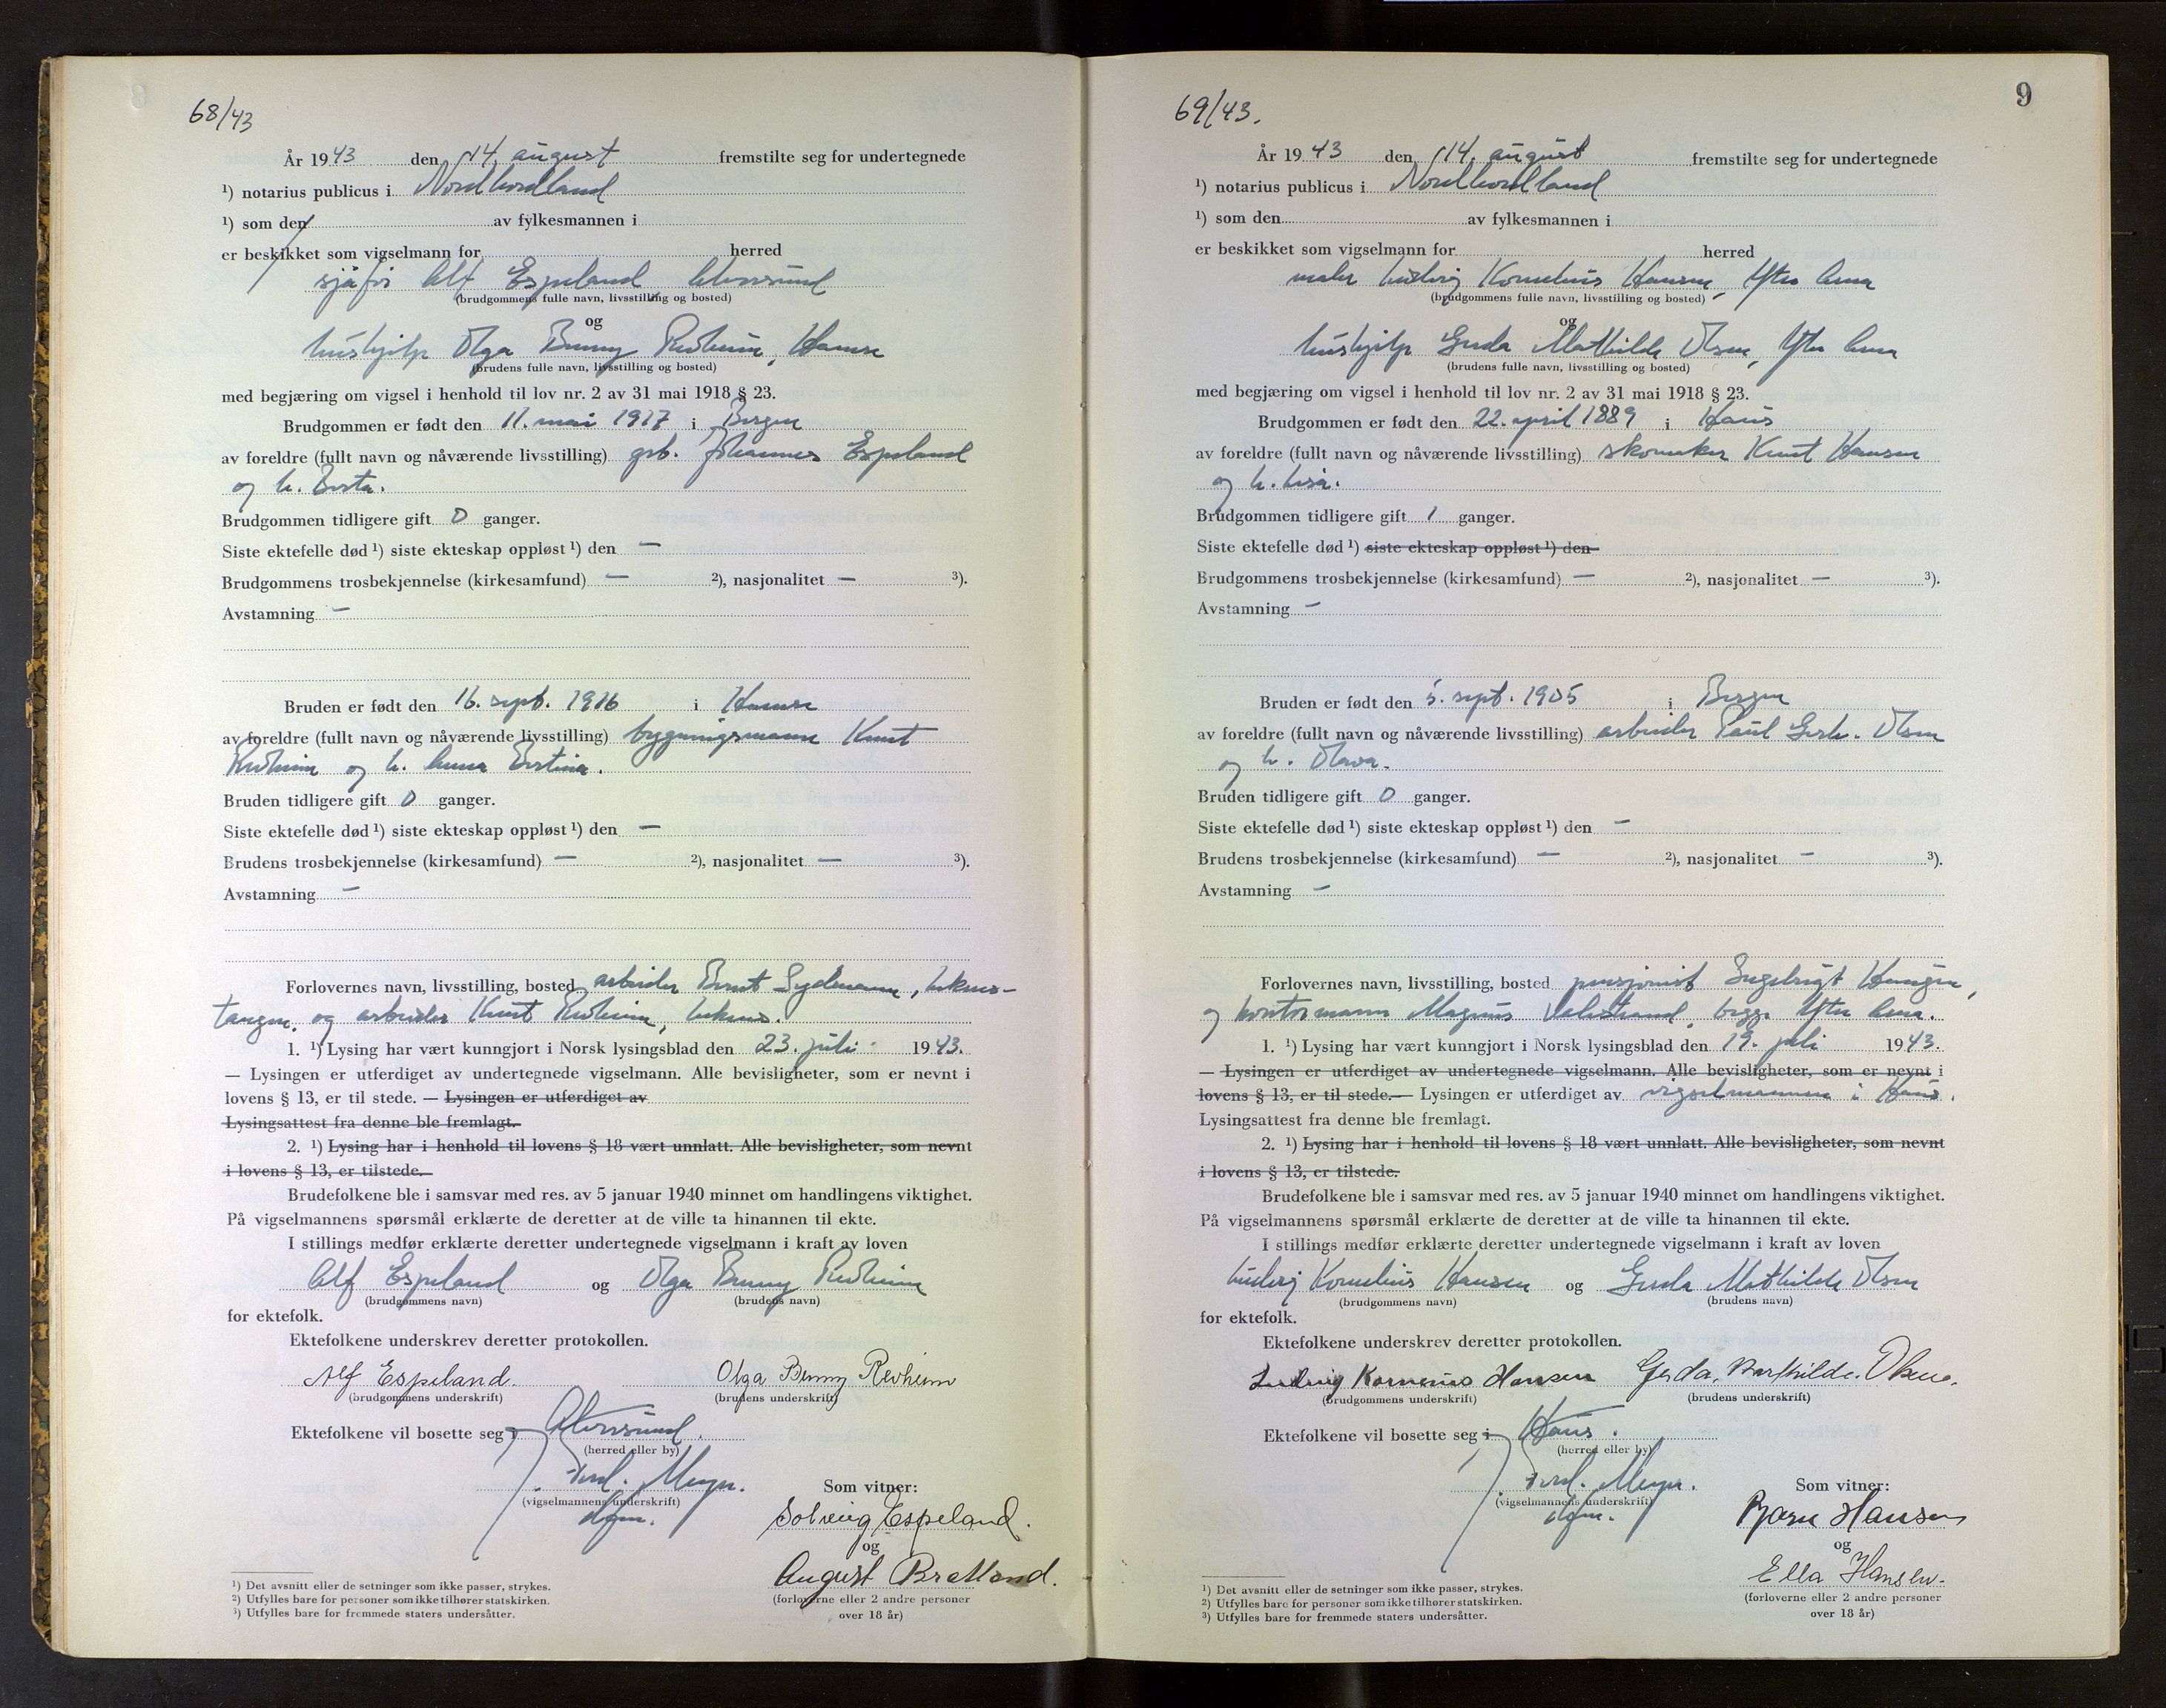 68/43
År 1943 den 14. august fremstilte seg for undertegnede
¹) notarius publicus i Nordhordland
¹) som den av fylkesmannen i
er beskikket som vigselmann for herred
sjåfør Alf Espeland Alversund
(brudgommens fulle navn, livsstilling og bosted)
og
hushjelp Olga Benny Revheim, Hamre
(brudens fulle navn, livsstilling og bosted)
med begjæring om vigsel i henhold til lov nr. 2 av 31 mai 1918 § 23.
Brudgommen er født den 11. mai 1917 i Bergen
av foreldre (fullt navn og nåværende livsstilling) grb. Johannes Espeland
og h. Berta.
Brudgommen tidligere gift 0 ganger.
Siste ektefelle død ¹) siste ekteskap oppløst ¹) den —
Brudgommens trosbekjennelse (kirkesamfund) — ²), nasjonalitet — ³).
Avstamning —
Bruden er født den 16. sept. 1916 i Hamre
av foreldre (fullt navn og nåværende livsstilling) bygningsmann Knut
Revheim og h. Anna Bertina.
Bruden tidligere gift 0 ganger.
Siste ektefelle død ¹) siste ekteskap oppløst ¹) den —
Brudens trosbekjennelse (kirkesamfund) — ²), nasjonalitet — ³).
Avstamning —
Forlovernes navn, livsstilling, bosted arbeider Bernt
og arbeider Knut Revheim,
1. ¹) Lysing har vært kunngjort i Norsk lysingsblad den 23. juli 1943.
— Lysingen er utferdiget av undertegnede vigselmann. Alle bevisligheter, som er nevnt i
lovens § 13, er til stede. — Lysingen er utferdiget av
Lysingsattest fra denne ble fremlagt.
2. ¹) Lysing har i henhold til lovens § 18 vært unnlatt. Alle bevisligheter, som nevnt
i lovens § 13, er tilstede.
Brudefolkene ble i samsvar med res. av 5 januar 1940 minnet om handlingens viktighet.
På vigselmannens spørsmål erklærte de deretter at de ville ta hinannen til ekte.
I stillings medfør erklærte deretter undertegnede vigselmann i kraft av loven
Alf Espeland og Olga Benny Revheim
(brudgommens navn) (brudens navn)
for ektefolk.
Ektefolkene underskrev deretter protokollen.
Alf Espeland. Olga Benny Revheim
(brudgommens underskrift) (brudens underskrift)
Ektefolkene vil bosette seg i Alversund.
(herred eller by)
Ferd. Meyer.
(vigselmannens underskrift)
Som vitner:
Solveig Espeland.
og
August Bratland.
(forloverne eller 2 andre personer
over 18 år)
¹) Det avsnitt eller de setninger som ikke passer, strykes.
²) Utfylles bare for personer som ikke tilhører statskirken.
³) Utfylles bare for fremmede staters undersåtter.
9
69/43.
År 1943 den 14. august fremstilte seg for undertegnede
¹) notarius publicus i Nordhordland
¹) som den av fylkesmannen i
er beskikket som vigselmann for herred
maler Ludvig Kornelius Hansen, Ytre Arna
(brudgommens fulle navn, livsstilling og bosted)
og
hushjelp Gerda Mathilde Olsen, Ytre Arna
(brudens fulle navn, livsstilling og bosted)
med begjæring om vigsel i henhold til lov nr. 2 av 31 mai 1918 § 23.
Brudgommen er født den 22. april 1889 i Haus
av foreldre (fullt navn og nåværende livsstilling) skomaker Knut Hansen
og h. Lisa.
Brudgommen tidligere gift 1 ganger.
Siste ektefelle død ¹) siste ekteskap oppløst ¹) den
Brudgommens trosbekjennelse (kirkesamfund) — ²), nasjonalitet — ³).
Avstamning —
Bruden er født den 5. sept. 1905 i Bergen
av foreldre (fullt navn og nåværende livsstilling) arbeider Paul Gerh. Olsen
og h. Olava.
Bruden tidligere gift 0 ganger.
Siste ektefelle død ¹) siste ekteskap oppløst ¹) den —
Brudens trosbekjennelse (kirkesamfund) — ²), nasjonalitet — ³).
Avstamning —
Forlovernes navn, livsstilling, bosted pensjonist Ingebrigt Haugen,
og kontormann Magnus Valestrand, begge Ytre Arna.
1. ¹) Lysing har vært kunngjort i Norsk lysingsblad den 19. juli 1943.
— Lysingen er utferdiget av undertegnede vigselmann. Alle bevisligheter, som er nevnt i
lovens § 13, er til stede. — Lysingen er utferdiget av vigselmannen i Haus.
Lysingsattest fra denne ble fremlagt.
2. ¹) Lysing har i henhold til lovens § 18 vært unnlatt. Alle bevisligheter, som nevnt
i lovens § 13, er tilstede.
Brudefolkene ble i samsvar med res. av 5 januar 1940 minnet om handlingens viktighet.
På vigselmannens spørsmål erklærte de deretter at de ville ta hinannen til ekte.
I stillings medfør erklærte deretter undertegnede vigselmann i kraft av loven
Ludvig Kornelius Hansen og Gerda Mathilde Olsen
(brudgommens navn) (brudens navn)
for ektefolk.
Ektefolkene underskrev deretter protokollen.
Ludvig Kornelius Hansen Gerda. Mathilde. Olsen.
(brudgommens underskrift) (brudens underskrift)
Ektefolkene vil bosette seg i Haus.
(herred eller by)
Ferd. Meyer.
(vigselmannens underskrift)
Som vitner:
Bjarne Hansen
og
Ella Hansen.
(forloverne eller 2 andre personer
over 18 år)
¹) Det avsnitt eller de setninger som ikke passer, strykes.
²) Utfylles bare for personer som ikke tilhører statskirken.
³) Utfylles bare for fremmede staters undersåtter.